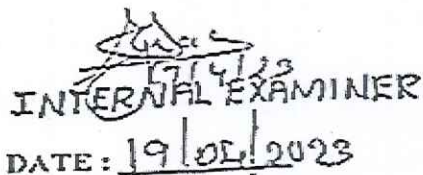 INTERNAL EXAMINER
DATE: 19/04/2023